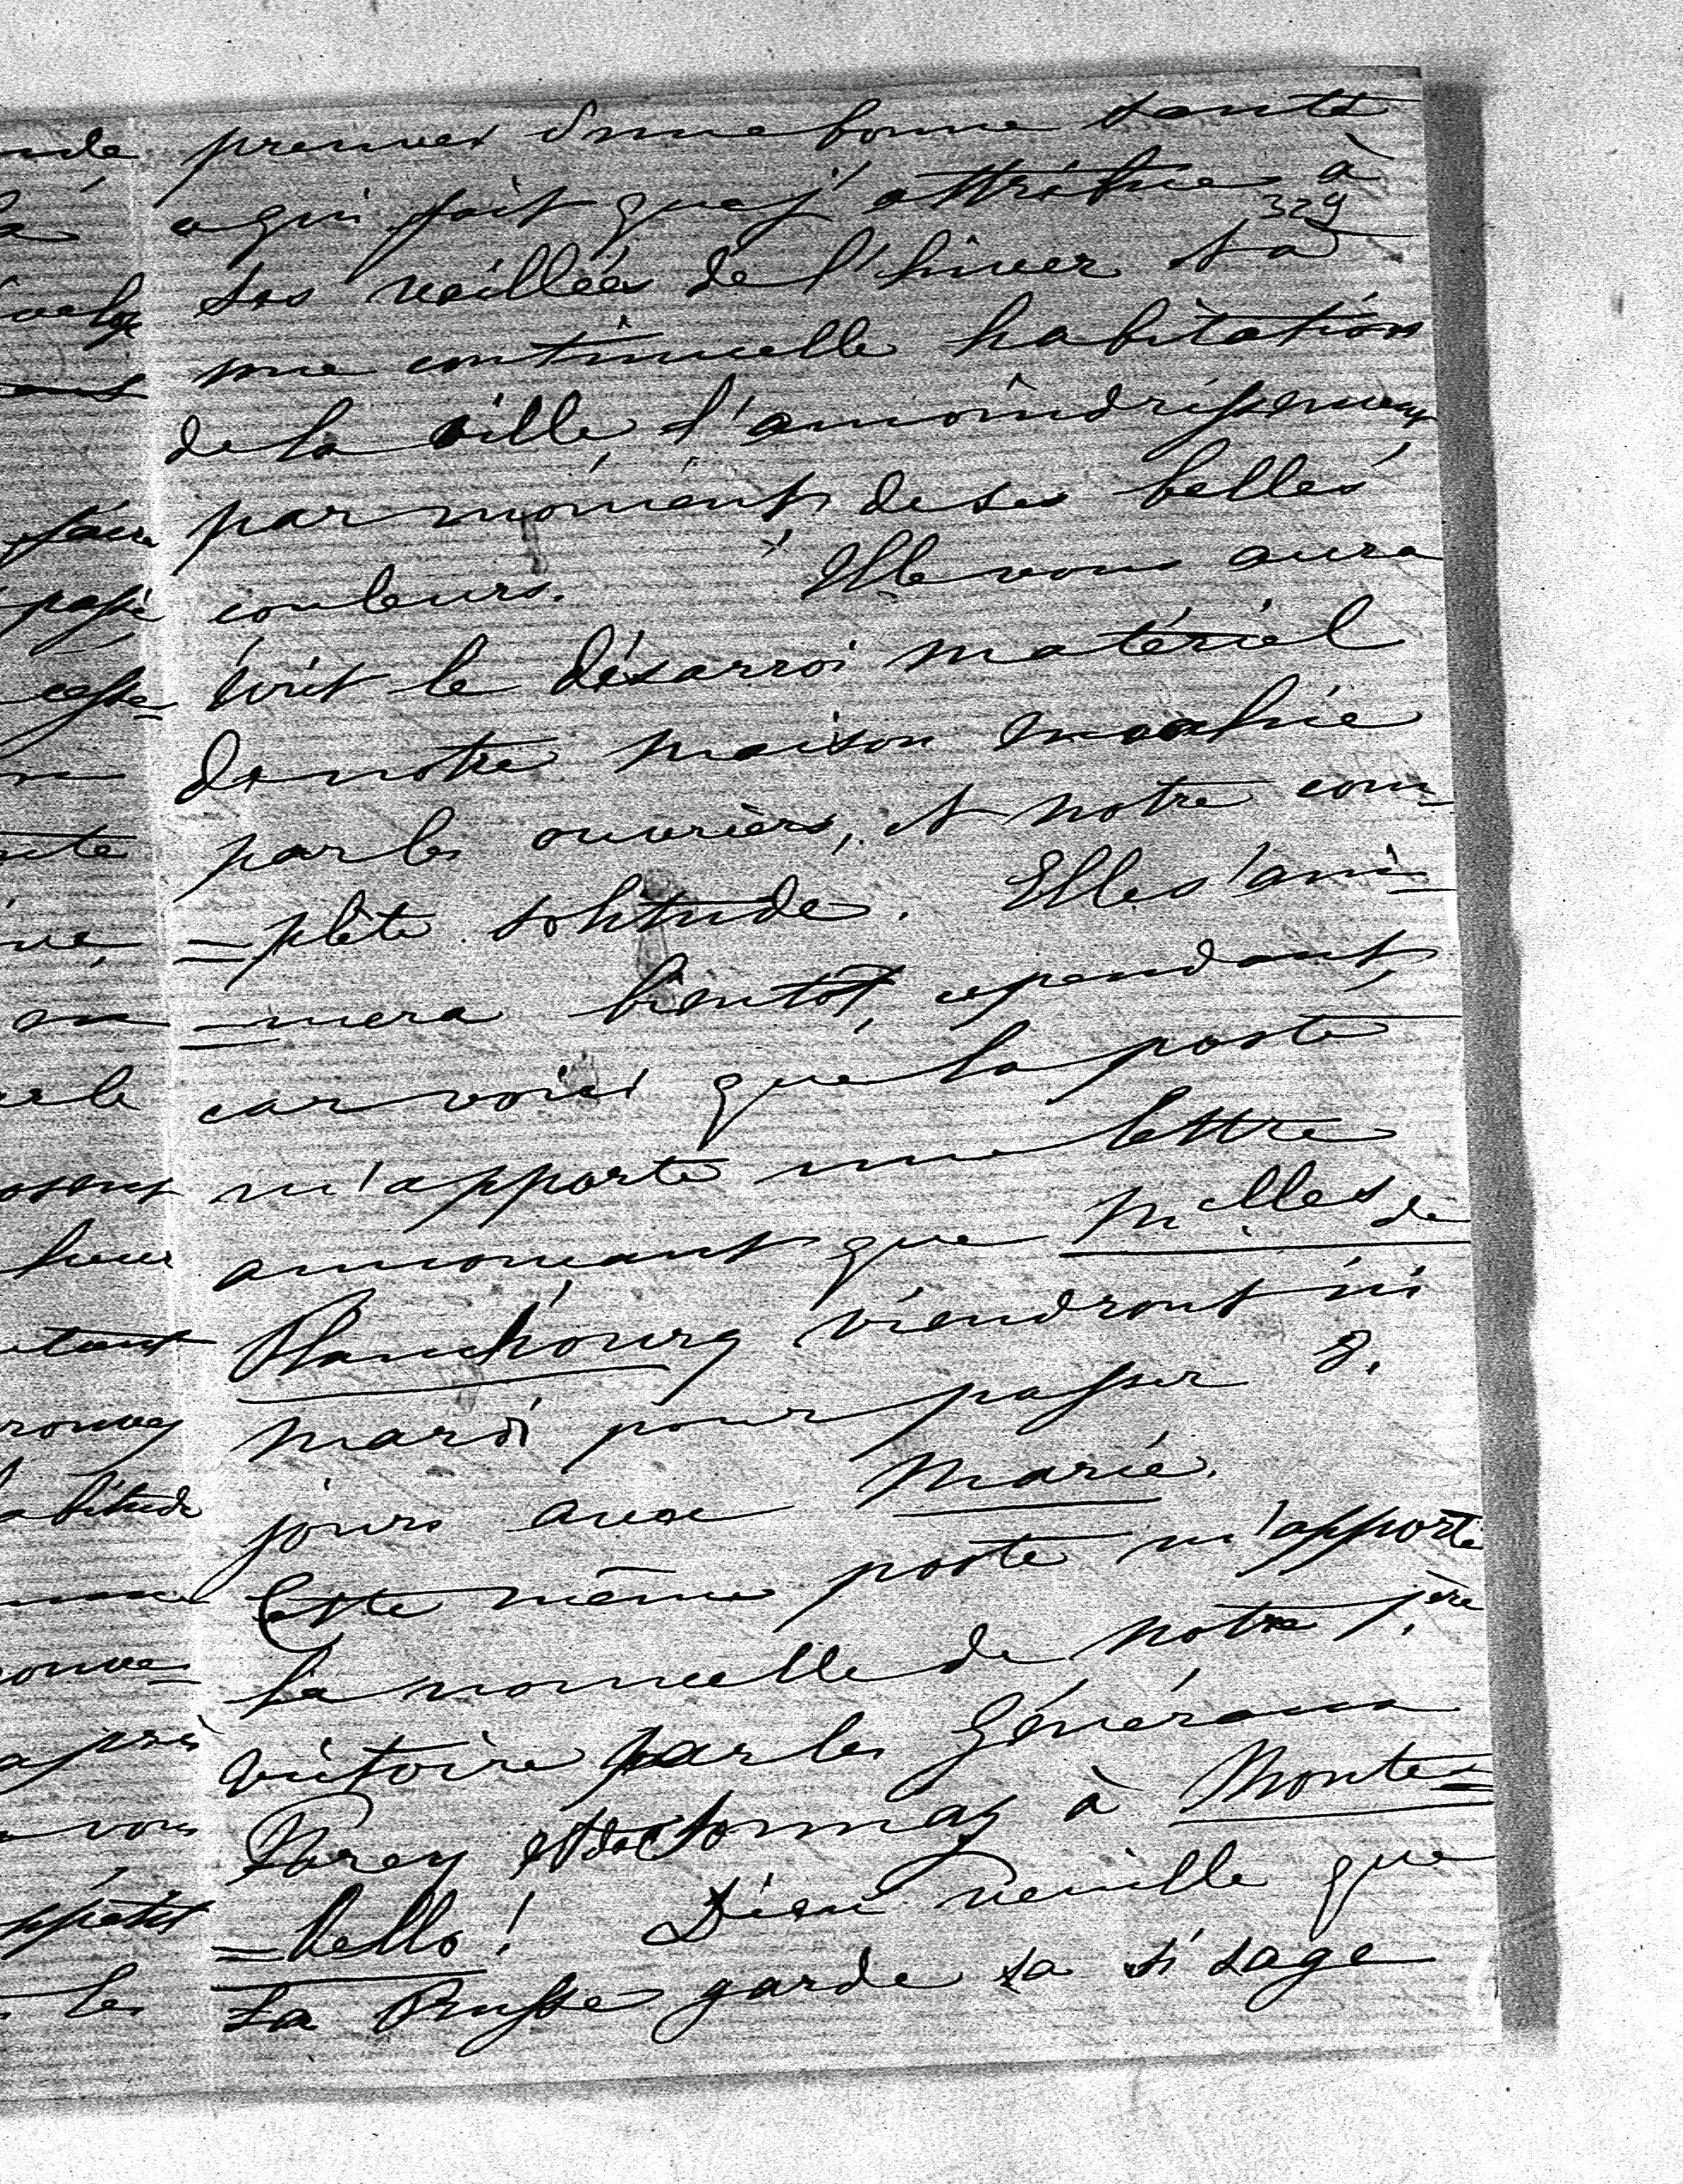 preuves d'une bonne santé
ce qui fait que j'attribue à
329
ses veillées de l'hiver & à
une continuelle habitation
de la ville, l'amoindrissement
par moments de ses belles
couleurs. Elle vous aura
écrit le désarroi matériel
de notre maison envahie
par les ouvriers, et notre com-
=plète solitude. Elle s'ani-
=mera bientôt, cependant,
car voici que la poste
m'apporte une lettre
annonçant que Melles de
viendront ici
mardi pour passer 8.
jours avec Marie.
Cette même poste m'apporte
la nouvelle de notre 1.ère
victoire par les Généraux
Forey et de Sonnaz à Monte=
=bello! Dieu veuille que
la Prusse garde sa si sage